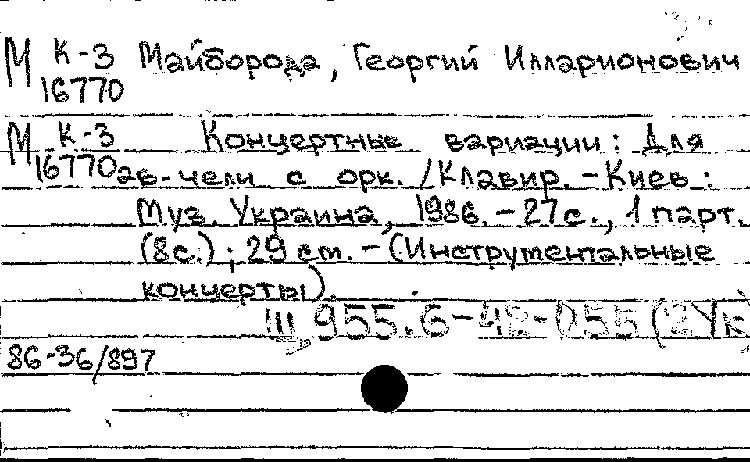 М К-3 Майборода, Георгий Илларионович
16770
М К-3 Концертные вариации: Для
16770 ов-чели с орк. / Клавир. - Киев:
Муз. Украина, 1986. - 27с., 1 парт.
(8с.); 29 см. - (Инструментальные
концерты).
III 955.6-42-055(2Ук
86-36/897